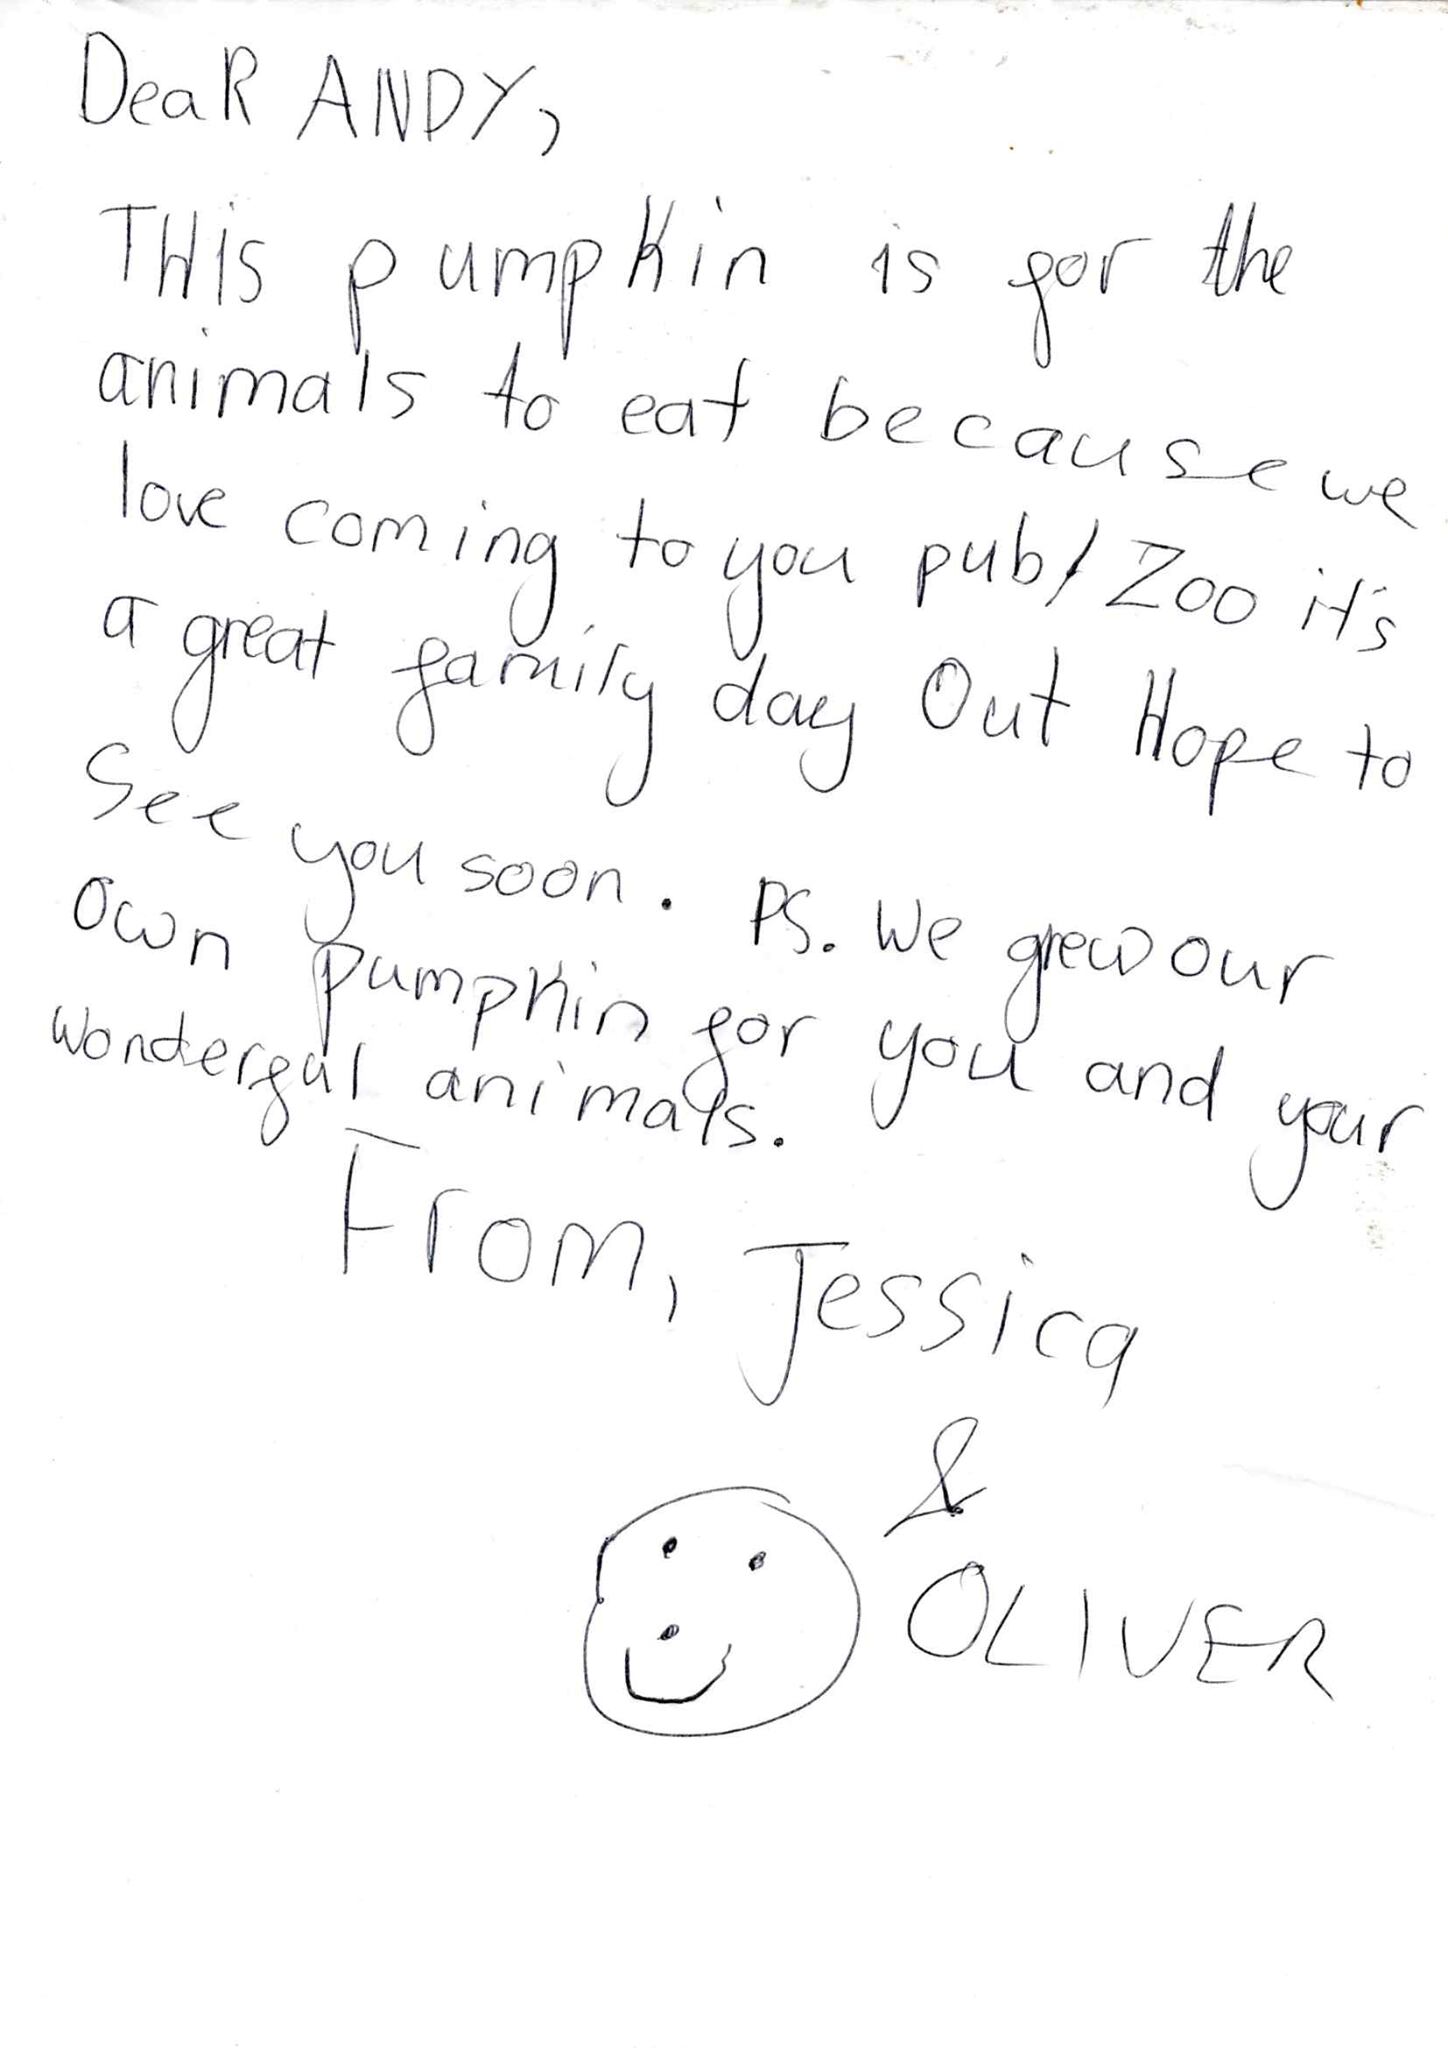 DeaR ANDY,
THis pumpKin is for the
animals to eat because we
love coming to you pub/Zoo it's
a great family day Out Hope to
See you soon. PS. We grew our
Own pumpKin for you and your
wonderful animals.
From, Jessica
&
OLIVER